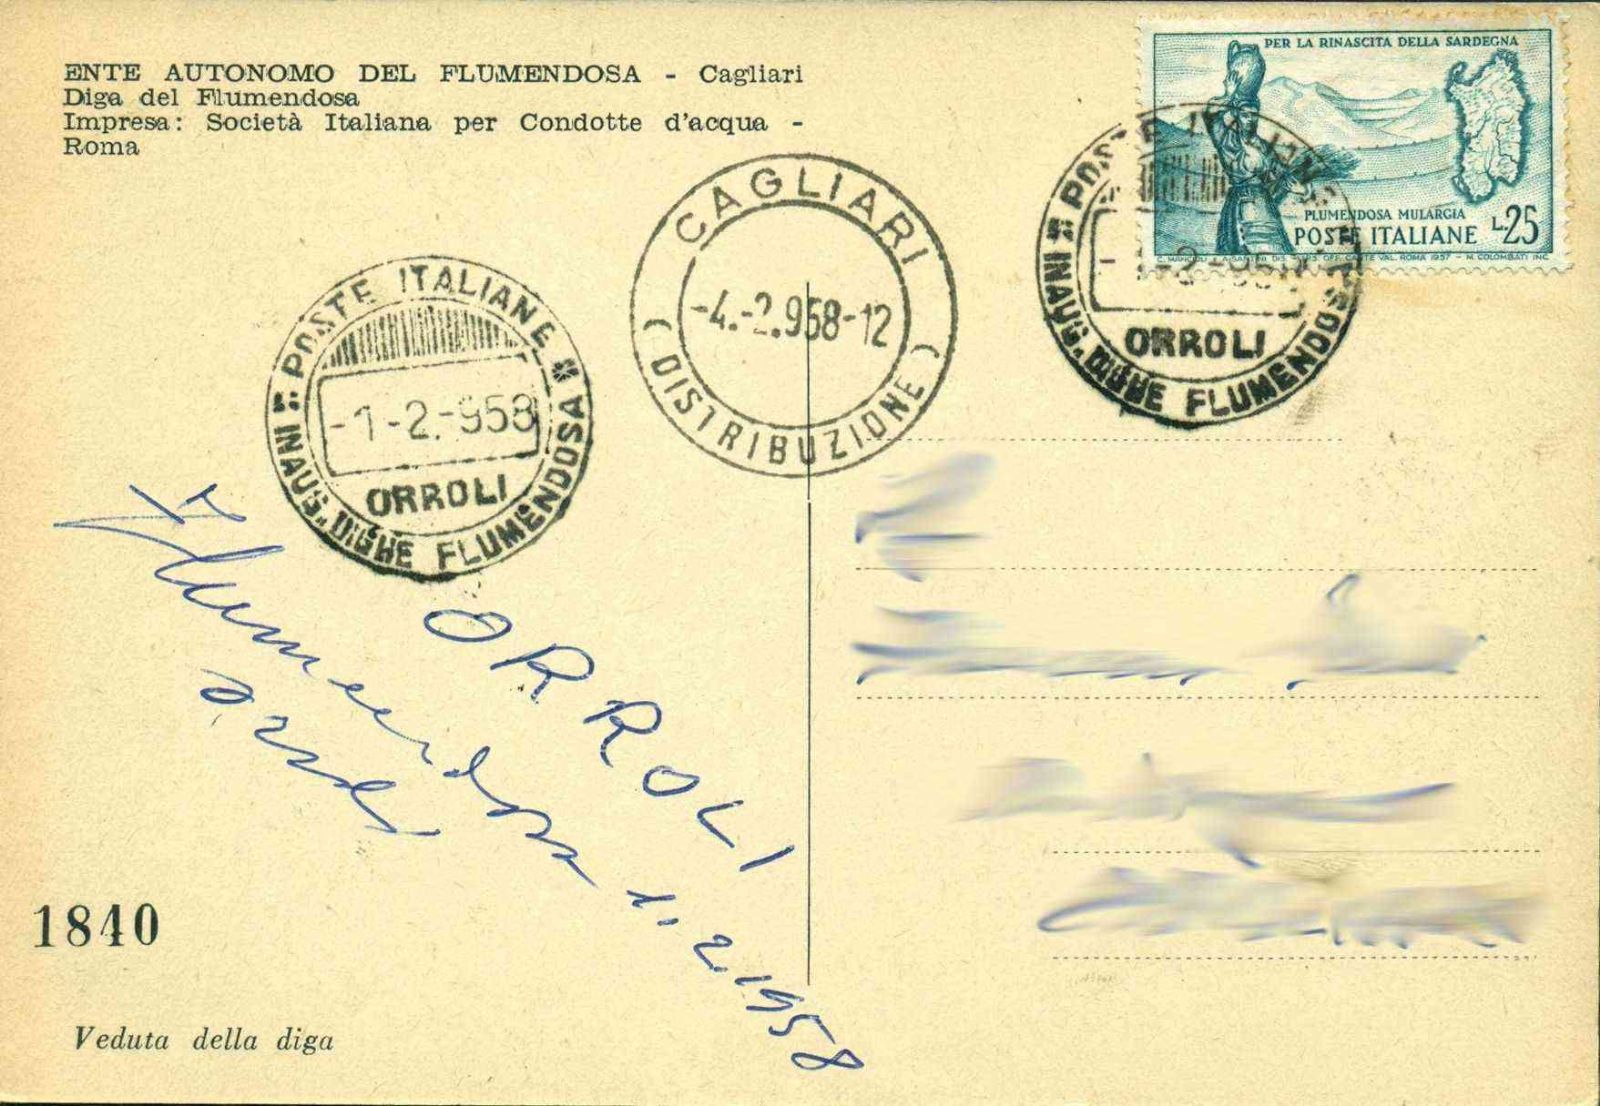 ENTE AUTONOMO DEL FLUMENDOSA - Cagliari
Diga del Flumendosa
Impresa: Società Italiana per Condotte d'acqua -
Roma
PER LA RINASCITA DELLA SARDEGNA
FLUMENDOSA MULARGIA
POSTE ITALIANE L.25
CAGLIARI
-4.-2.958-12
( DISTRIBUZIONE )
POSTE ITALIANE
-1-2.-958
ORROLI
INAUG. DIGHE FLUMENDOSA
POSTE ITALIANE
ORROLI
INAUG. DIGHE FLUMENDOSA
ORROLI
Flumendosa 1.2.1958
1840
Veduta della diga